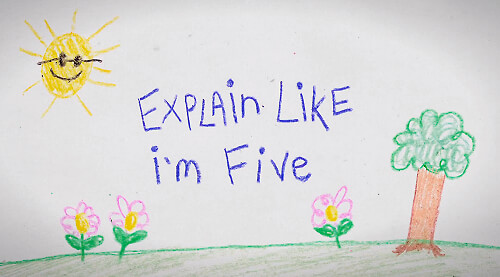 EXPLAin LiKE
i'm Five